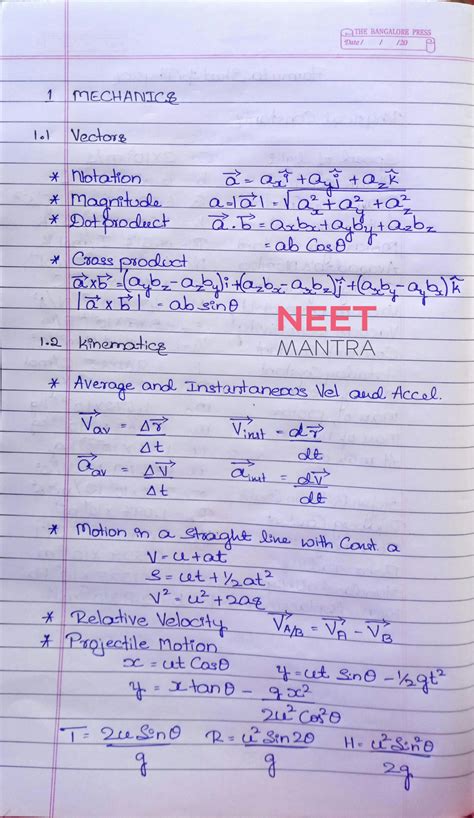 THE BANGALORE PRESS
Date / / /20
1 MECHANICS
1.1 Vectors
* Notation a⃗ = aₓi⃗ + a_y j⃗ + a_z k⃗
* Magnitude a = |a⃗| = √(aₓ² + a_y² + a_z²)
* Dot product a⃗ . b⃗ = aₓbₓ + a_y b_y + a_z b_z
= ab Cosθ
* Cross product
a⃗ x b⃗ = (a_y b_z - a_z b_y)i⃗ + (a_z bₓ - aₓ b_z)j⃗ + (aₓ b_y - a_y bₓ)k⃗
|a⃗ x b⃗| = ab sinθ
NEET
MANTRA
1.2 Kinematics
* Average and Instantaneous Vel and Accel.
V⃗av = Δr⃗/Δt V⃗inst = dr⃗/dt
a⃗av = ΔV⃗/Δt a⃗inst = dV⃗/dt
* Motion in a straght line with Const. a
V = u + at
S = ut + 1/2 at²
V² = u² + 2as
* Relative Velocity V⃗A/B = V⃗A - V⃗B
* Projectile Motion
x = ut Cosθ y = ut Sinθ - 1/2 gt²
y = x tanθ - gx²/2u² Cos²θ
T = 2u Sinθ/g R = u² Sin2θ/g H = u² Sin²θ/2g